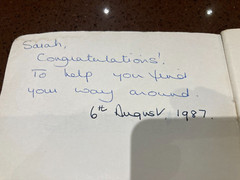 Sarah,
Congratulations!
To help you find
your way around.
6th August, 1987.